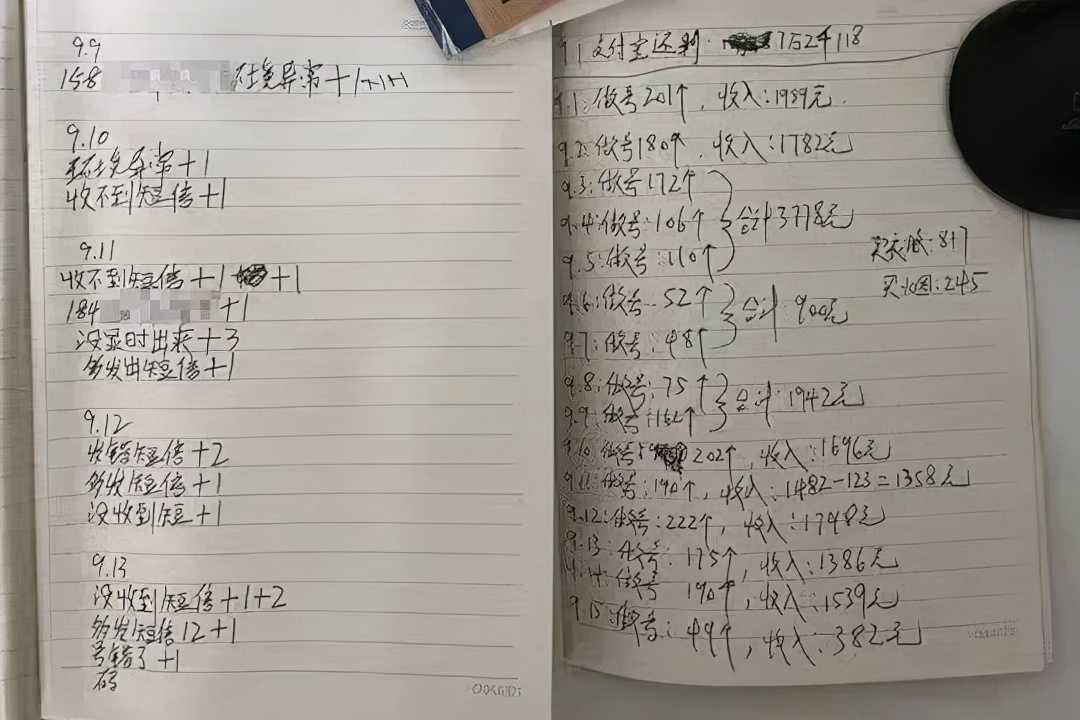 9.9
158 环境异常+1+1+1
9.10
环境异常+1
收不到短信+1
9.11
收不到短信+1 +1
184 +1
没显时出来+3
多发出短信+1
9.12
发错短信+2
多发短信+1
没收到短+1
9.13
没收到短信+1+2
多发短信12+1
号错了+1
码
9.1 支付宝还剩: 7万2千118
9.1:做号201个,收入:1989元.
9.2:做号180个,收入:1782元
9.3:做号172个
9.4:做号:106个 合计3778元
9.5:做号:110个
买衣服:817
买 图:245
9.6:做号:52个
合计:900元
9.7:做号:48个
9.8:做号:75个
合计:1942元
9.9:做号:162个
9.10 做号 202个,收入:1696元
9.11:做号:190个,收入:1482-123=1358元
9.12:做号:222个,收入:1748元
9.13:做号:175个,收入:1386元
9.14:做号 190个,收入:1539元
9.15:做号:49个,收入:382元